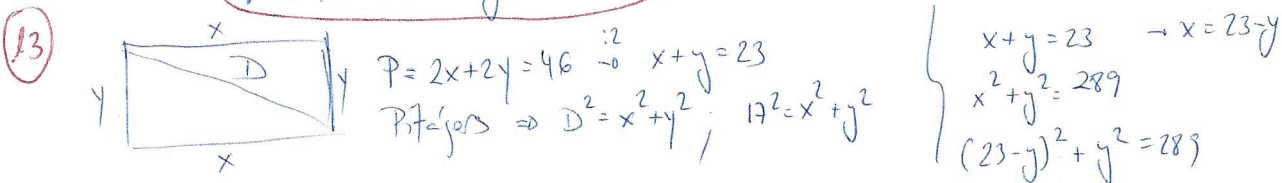 13
x
D
y
y
x
P = 2x+2y = 46 :2 → x+y = 23
Pitágoras ⇒ D² = x²+y² ; 17² = x²+y²
x+y = 23 → x = 23-y
x²+y² = 289
(23-y)² + y² = 289